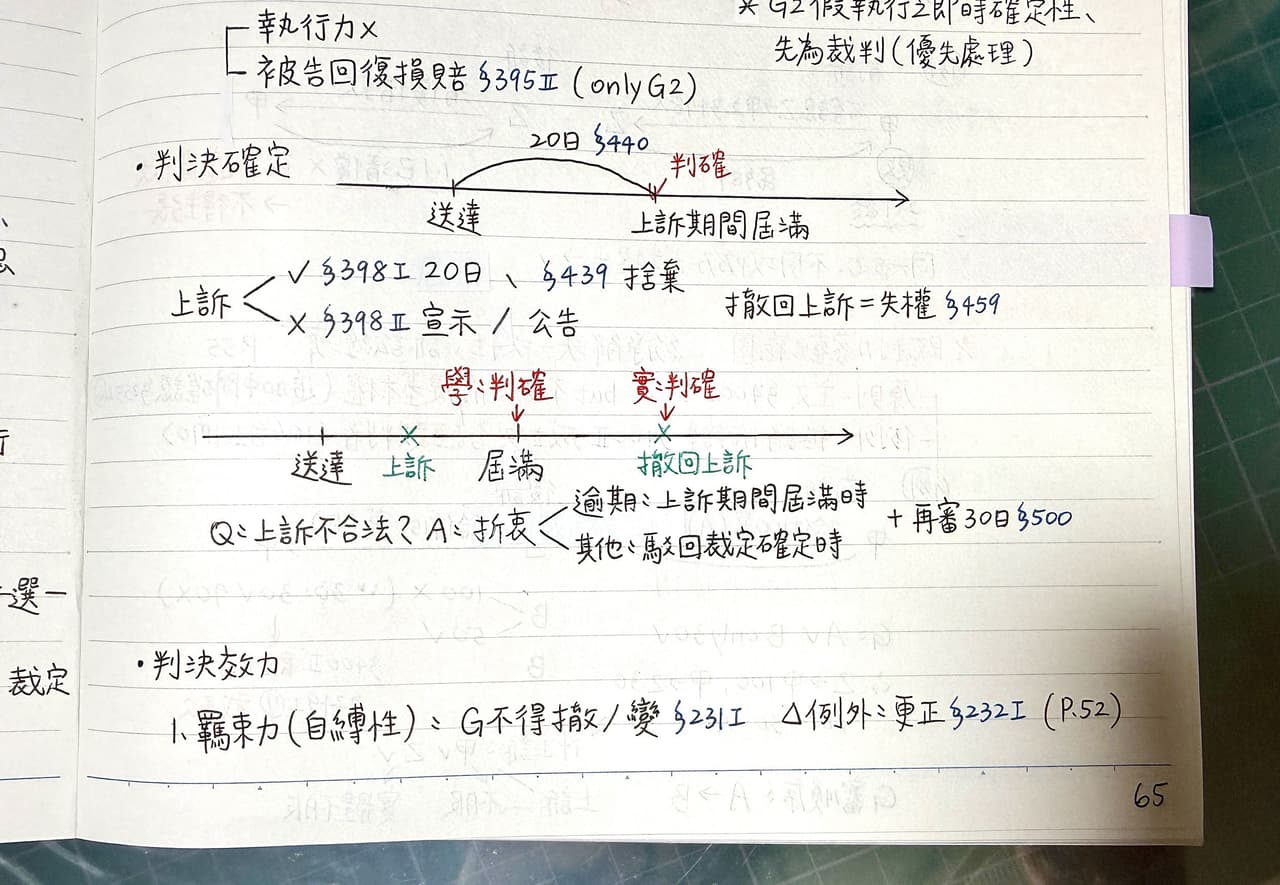 * G2假執行之即時確定性、
先為裁判(優先處理)
執行力×
被告回復損賠 §395Ⅱ (only G2)
•判決確定
20日 §440
判確
送達
上訴期間屆滿
上訴
✓ §398Ⅰ 20日、§439 捨棄
× §398Ⅱ 宣示 / 公告
撤回上訴=失權 §459
學:判確
實:判確
送達
上訴
屆滿
撤回上訴
Q:上訴不合法? A:折衷
逾期:上訴期間屆滿時
其他:駁回裁定確定時
+再審30日§500
選一
裁定
•判決效力
1、羈束力(自縛性):G不得撤/變 §231Ⅰ △例外:更正§232Ⅰ (P.52)
65